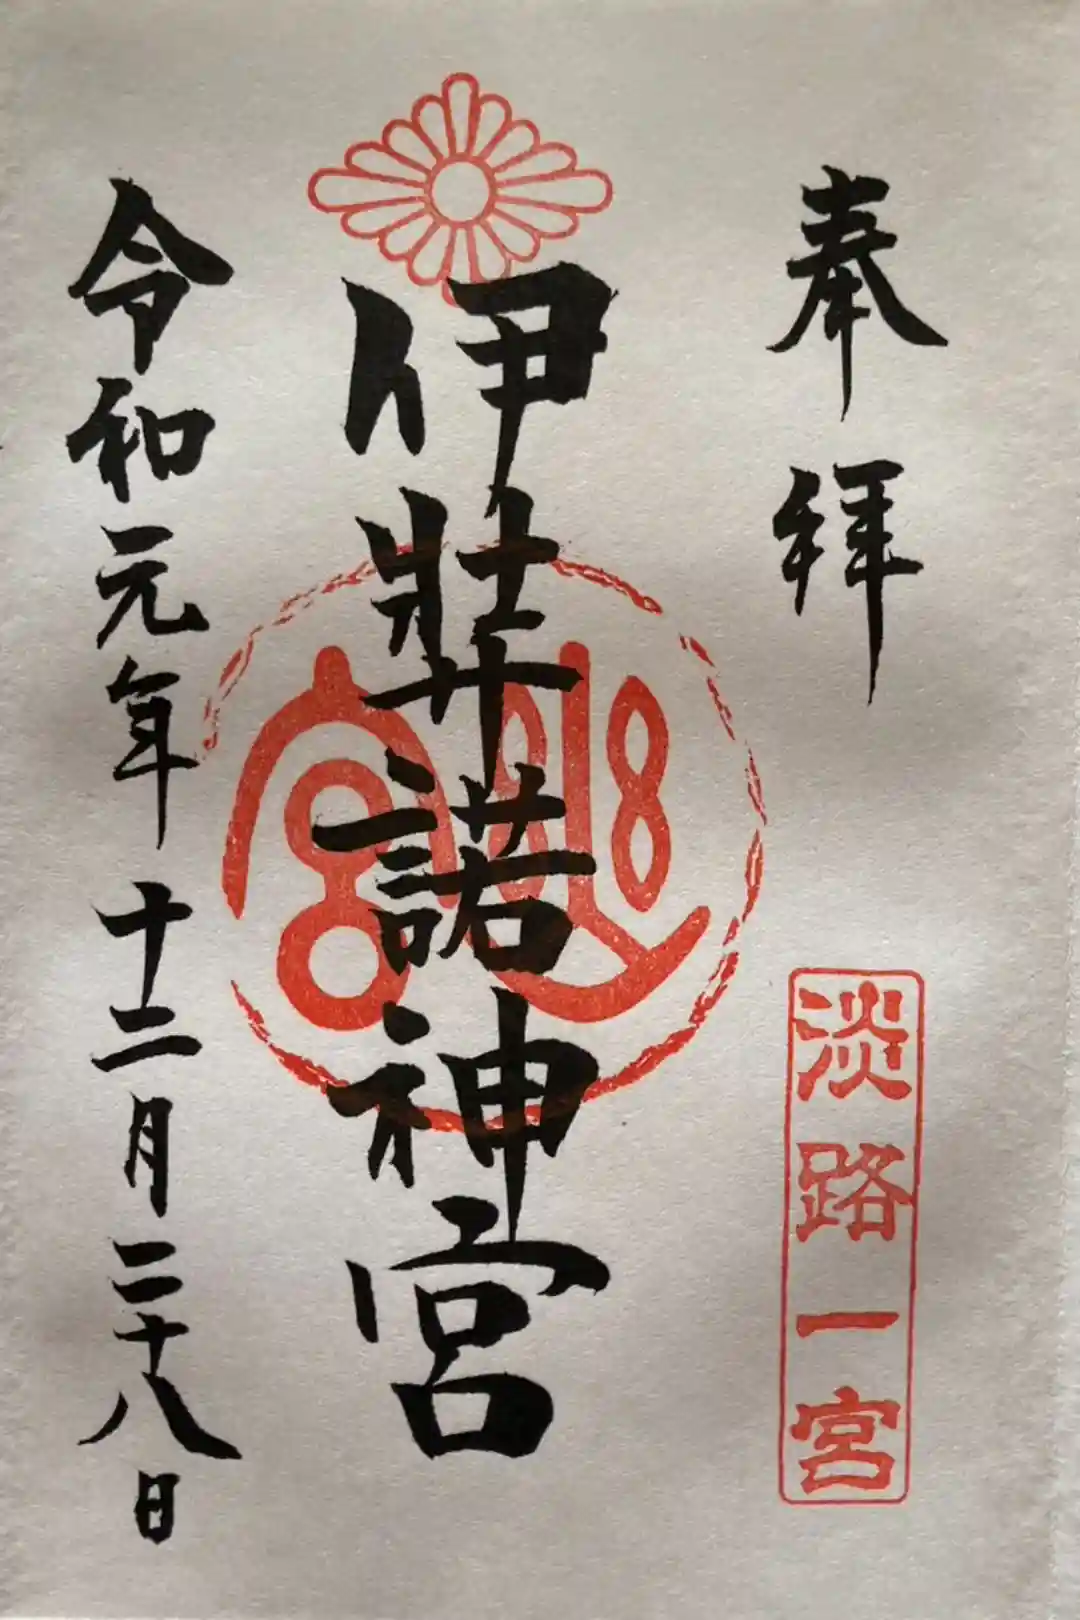 奉拝
淡路一宮
伊弉諾神宮
幽宮
令和元年十二月二十八日